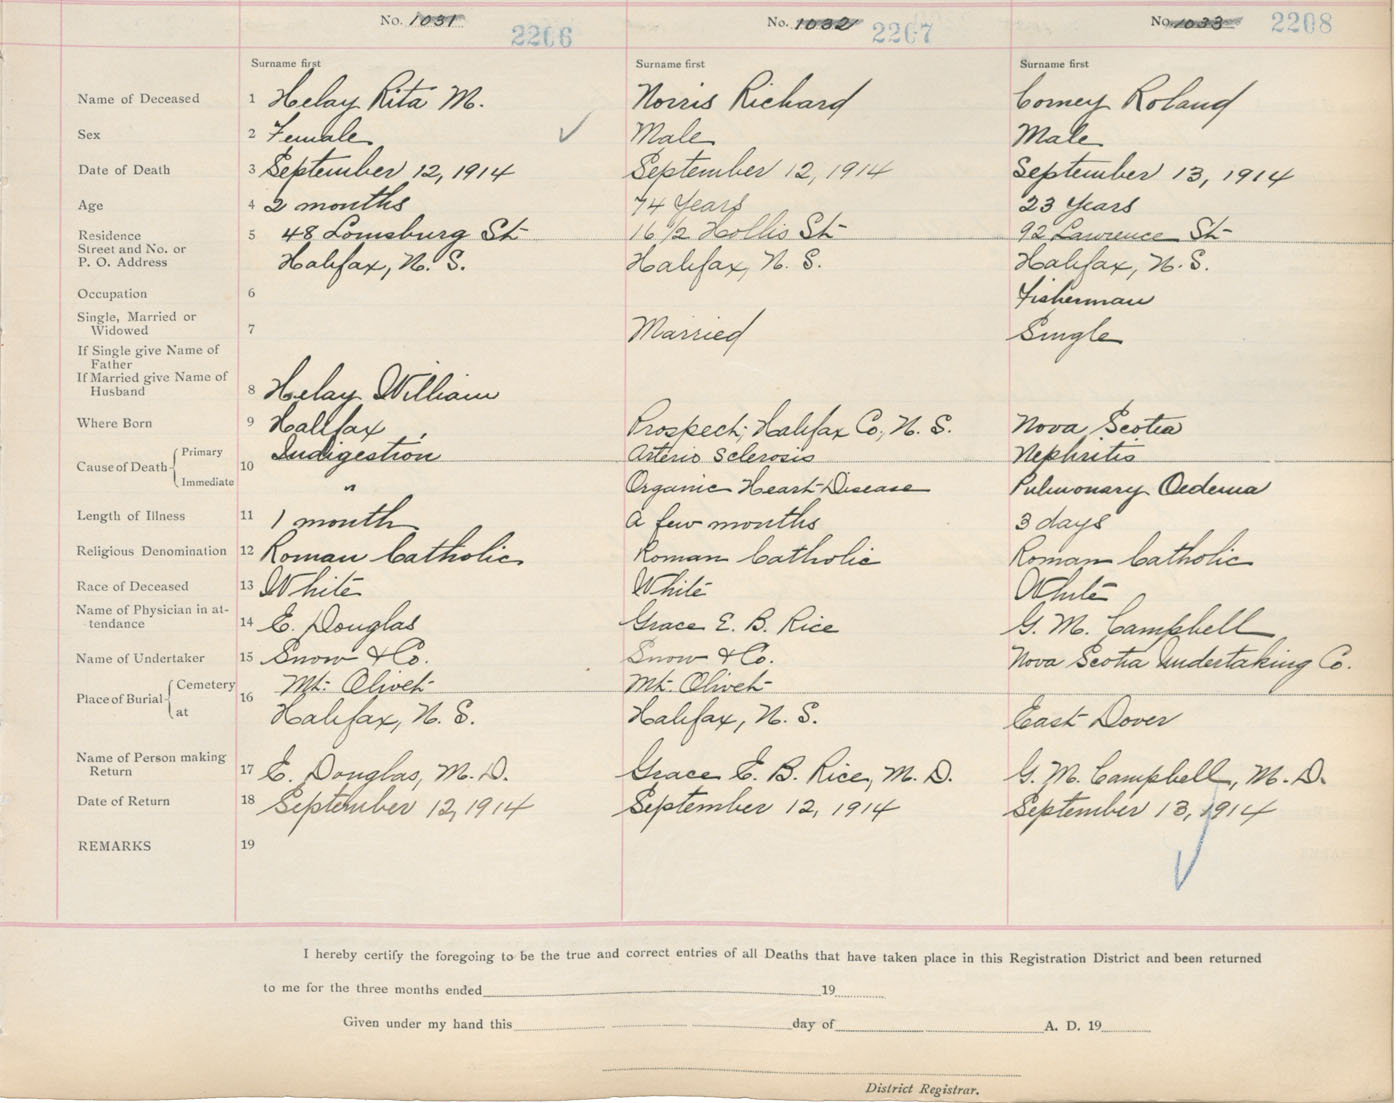 No. 1031 2206 No. 1032 2207 No. 1033 2208
Surname first Surname first Surname first
Name of Deceased 1 Helay Rita M. Norris Richard Corney Roland
Sex 2 Female Male Male
Date of Death 3 September 12, 1914 September 12, 1914 September 13, 1914
Age 4 2 months 74 Years 23 Years
Residence 5 48 Lomsburg St 16 1/2 Hollis St 92 Lawrence St
Street and No. or
P. O. Address Halifax, N. S. Halifax, N. S. Halifax, N. S.
Occupation 6 Fisherman
Single, Married or
Widowed 7 Married Single
If Single give Name of
Father
If Married give Name of
Husband 8 Helay William
Where Born 9 Halifax Prospect, Halifax Co., N. S. Nova Scotia
Cause of Death Primary 10 Indigestion Arterio Sclerosis Nephritis
Immediate " Organic Heart Disease Pulmonary Oedema
Length of Illness 11 1 month a few months 3 days
Religious Denomination 12 Roman Catholic Roman Catholic Roman Catholic
Race of Deceased 13 White White White
Name of Physician in at-
tendance 14 E. Douglas Grace E. B. Rice G. M. Campbell
Name of Undertaker 15 Snow & Co. Snow & Co. Nova Scotia Undertaking Co.
Place of Burial Cemetery 16 Mt. Olivet Mt. Olivet
at Halifax, N. S. Halifax, N. S. East Dover
Name of Person making
Return 17 E. Douglas, M. D. Grace E. B. Rice, M. D. G. M. Campbell, M. D.
Date of Return 18 September 12, 1914 September 12, 1914 September 13, 1914
REMARKS 19
I hereby certify the foregoing to be the true and correct entries of all Deaths that have taken place in this Registration District and been returned
to me for the three months ended 19
Given under my hand this day of A. D. 19
District Registrar.